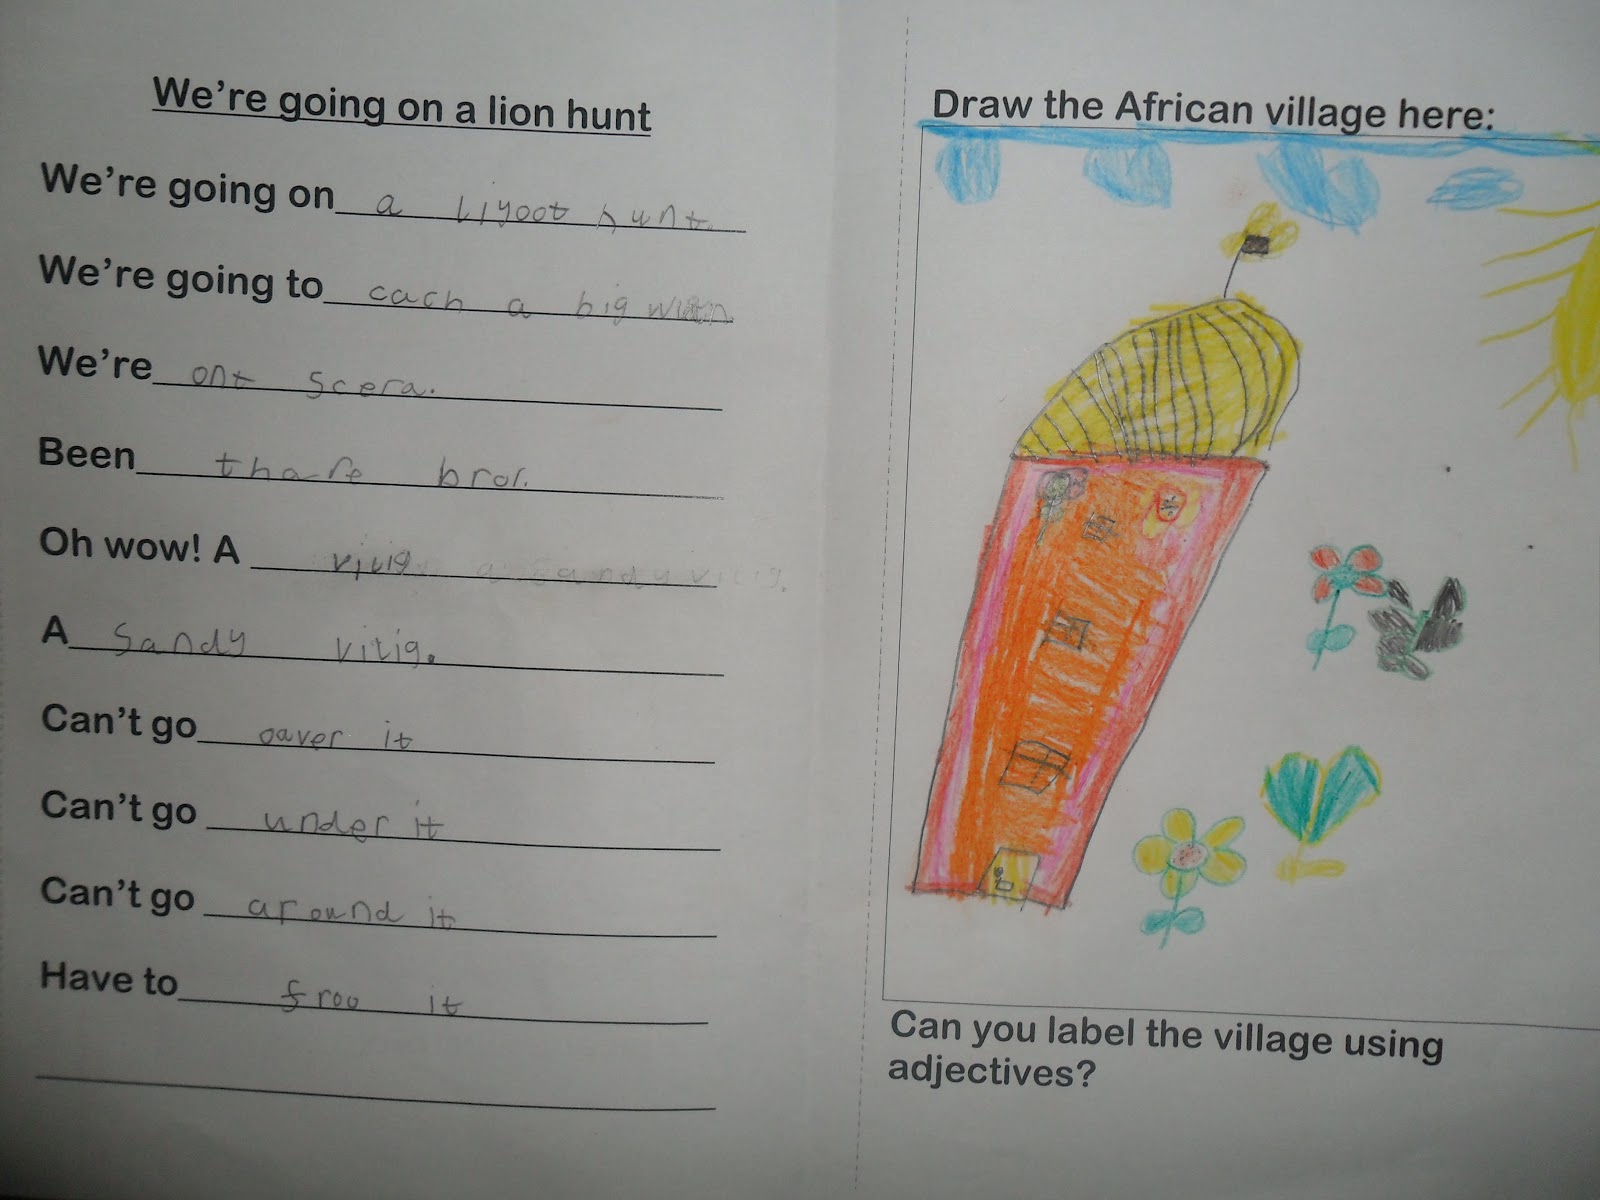 We're going on a lion hunt
We're going on a liyoot hunt.
We're going to cach a big
We're ont scera.
Been thare bror.
Oh wow! A vilig
A sandy vilig.
Can't go oaver it
Can't go under it
Can't go around it
Have to froo it
Draw the African village here:
Can you label the village using
adjectives?